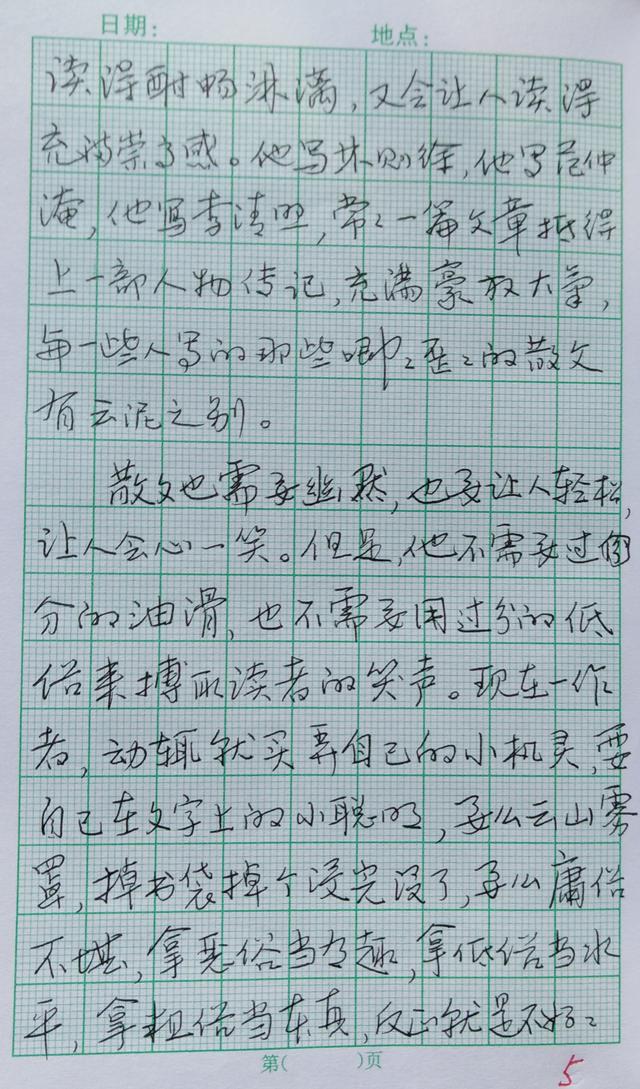 日期： 地点：
读得酣畅淋漓，又会让人读得
充满崇高感。他写林则徐，他写范仲
淹，他写李清照，常々一篇文章抵得
上一部人物传记，充满豪放大气，
与一些人写的那些唧々歪々的散文
有云泥之别。
散文也需要幽默，也要让人轻松，
让人会心一笑。但是，他不需要过
分的油滑，也不需要用过分的低
俗来搏取读者的笑声。现在一作
者，动辄就卖弄自己的小机灵，耍
自己在文字上的小聪明，要么云山雾
罩，掉书袋掉个没完没了，要么庸俗
不堪，拿恶俗当有趣，拿低俗当水
平，拿粗俗当本真，反正就是不好々
第( )页
5